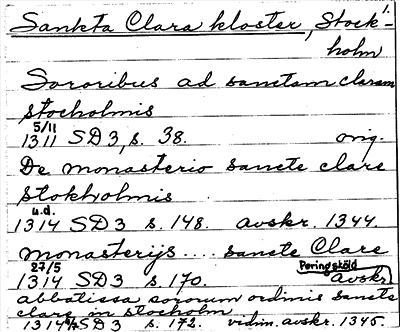 1.
Sankta Clara kloster, Stock-
holm
Sororibus ad sanctam claram
stocholmis
5/11
1311 SD 3, s. 38. orig.
De monasterio sancte clare
stokholmis
u.d.
1314 SD 3 s. 148. avskr. 1344.
monasterijs .... sancte Clare
27/5 Peringsköld
1314 SD 3 s. 170. avskr.
abbatissa sororum ordinis sancte
clare in stocholm
1314 SD 3 s. 172. vidim. avskr. 1345.